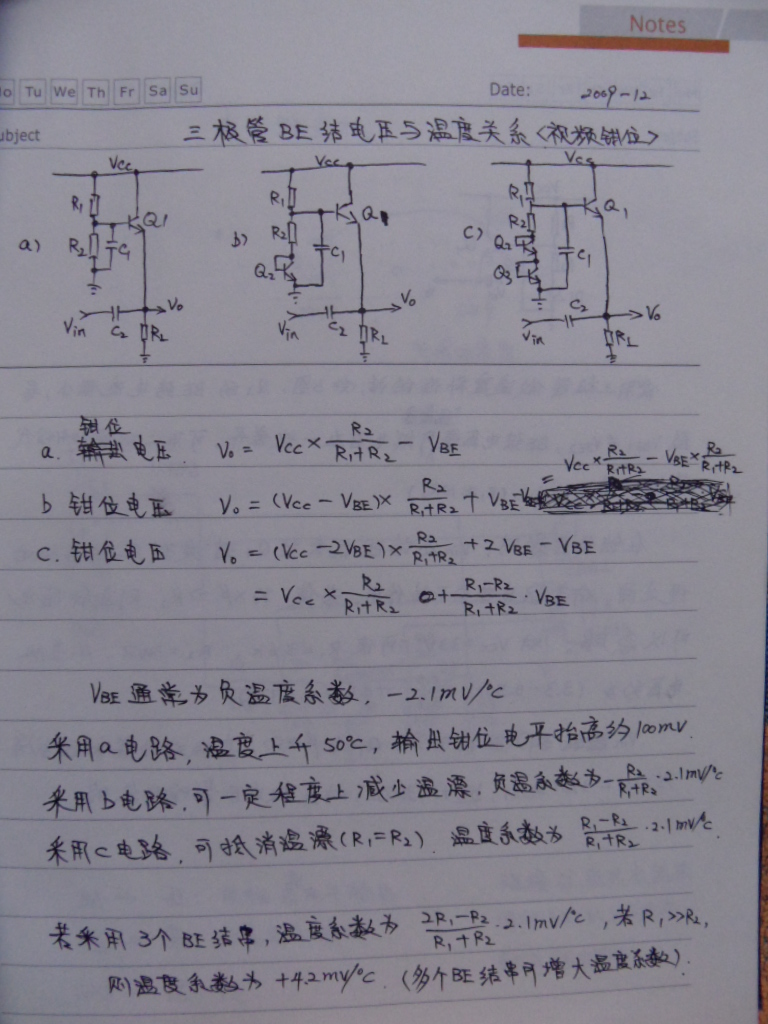 Notes
Mo Tu We Th Fr Sa Su
Date: 2009-12
Subject 三极管BE结电压与温度关系<视频钳位>
a) Vcc R1 R2 C1 Q1 Vin C2 Vo RL
b) Vcc R1 R2 Q2 C1 Q1 Vin C2 Vo RL
c) Vcc R1 R2 Q2 Q3 C1 Q1 Vin C2 Vo RL
a. 钳位电压 Vo = Vcc × R2/(R1+R2) - VBE
b 钳位电压 Vo = (Vcc - VBE) × R2/(R1+R2) + VBE - VBE = Vcc × R2/(R1+R2) - VBE × R2/(R1+R2)
C. 钳位电压 Vo = (Vcc - 2VBE) × R2/(R1+R2) + 2VBE - VBE
= Vcc × R2/(R1+R2) + R1-R2/(R1+R2) · VBE
VBE 通常为负温度系数, -2.1mV/°C
采用a电路, 温度上升50°C, 输出钳位电平抬高约100mV.
采用b电路, 可一定程度上减少温漂. 负温系数为 -R2/(R1+R2) · 2.1mV/°C
采用c电路, 可抵消温漂(R1=R2). 温度系数为 R1-R2/(R1+R2) · 2.1mV/°C.
若采用3个BE结串, 温度系数为 2R1-R2/(R1+R2) · 2.1mV/°C, 若R1>>R2,
则温度系数为 +4.2mV/°C. (多个BE结串可增大温度系数).